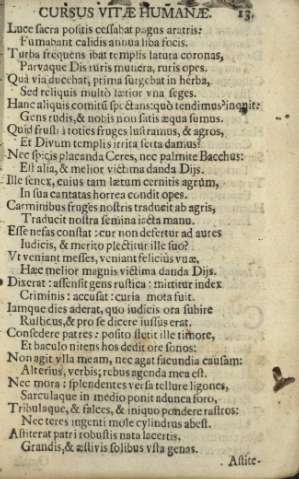 CURSUS VITÆ HUMANÆ. 13.
Luce sacra positis cessabat pagus aratris:
Fumabant calidis annua liba focis.
Turba frequens ibat templis latura coronas,
Parvaque Dis ruris munera, ruris opes.
Quà via ducebat, prima surgebat in herba,
Sed reliquis multò lætior vna seges.
Hanc aliquis comitũ spectans: quò tendimus? inquit:
Gens rudis, & nobis non satis æqua sumus.
Quid frustrà toties fruges lustramus, & agros,
Et Divum templis irrita serta damus?
Nec spicis placanda Ceres, nec palmite Bacchus:
Est alia, & melior victima danda Dijs.
Ille senex, cuius tam lætum cernitis agrum,
In sua cantatas horrea condit opes.
Carminibus fruges nostris traducit ab agris,
Traducit nostra semina iacta manu.
Esse nefas constat: cur non defertur ad aures
Iudicis, & merito plectitur ille suo?
Vt veniant messes, veniant feliciùs vuæ,
Hæc melior magnis victima danda Dijs.
Dixerat: assensit gens rustica: mittitur index
Criminis: accusat: curia mota fuit.
Iamque dies aderat, quo iudicis ora subire
Rusticus, & pro se dicere iussus erat.
Consedere patres: posito stetit ille timore,
Et baculo nitens hos dedit ore sonos:
Non agit vlla meam, nec agat facundia causam:
Alterius, verbis; rebus agenda mea est.
Nec mora: splendentes versa tellure ligones,
Sarculaque in medio ponit adunca foro,
Tribulaque, & falces, & iniquo pondere rastros:
Nec teres ingenti mole cylindrus abest.
Astiterat patri robustis nata lacertis,
Grandis, & æstivis solibus vsta genas.
Astite-